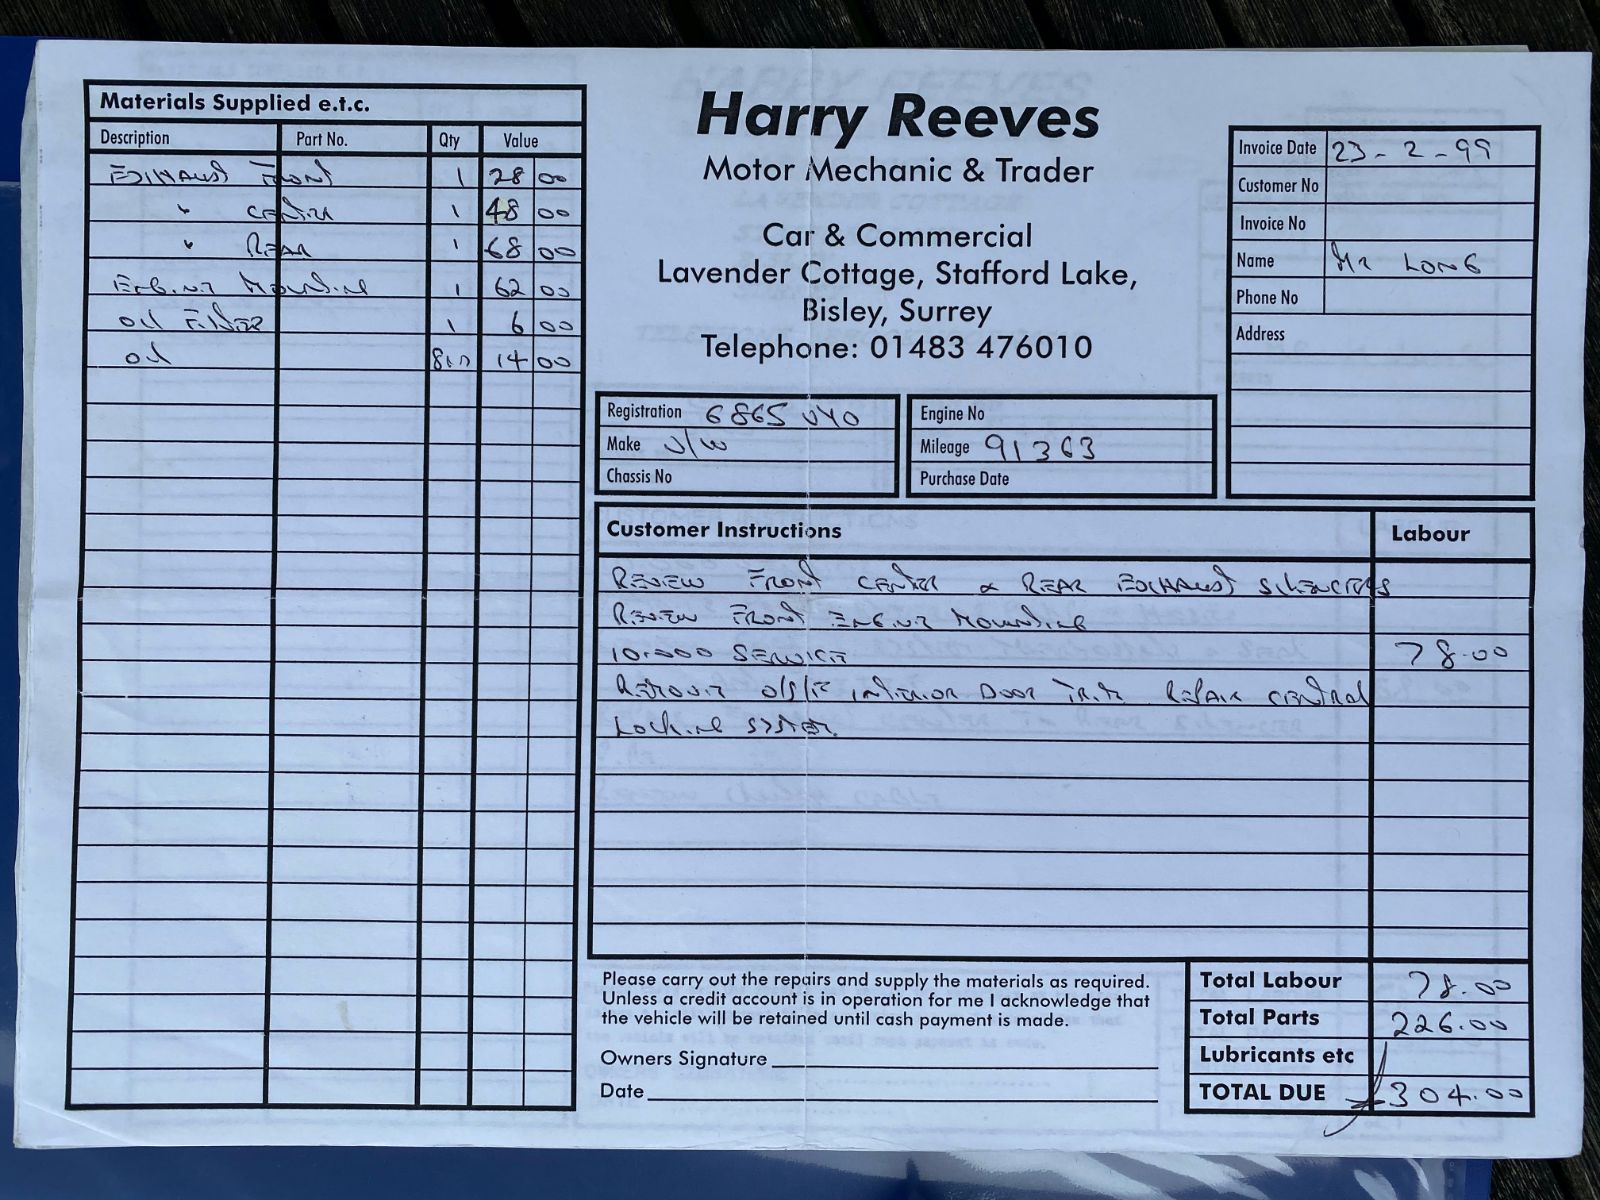 Materials Supplied e.t.c.
Description Part No. Qty Value
EXHAUST FRONT 1 28 00
" CENTER 1 48 00
" REAR 1 68 00
ENGINE MOUNTING 1 62 00
OIL FILTER 1 6 00
OIL 14 00
Harry Reeves
Motor Mechanic & Trader
Car & Commercial
Lavender Cottage, Stafford Lake,
Bisley, Surrey
Telephone: 01483 476010
Invoice Date 23-2-99
Customer No
Invoice No
Name MR LONG
Phone No
Address
Registration
Make V/W
Chassis No
Engine No
Mileage 91363
Purchase Date
Customer Instructions Labour
RENEW FRONT CENTER & REAR EXHAUST SILENCERS
RENEW FRONT ENGINE MOUNTING
10.000 SERVICE 78.00
REMOVE O/S/F INTERIOR DOOR TRIM REPAIR CENTRAL
LOCKING SYSTEM.
Please carry out the repairs and supply the materials as required.
Unless a credit account is in operation for me I acknowledge that
the vehicle will be retained until cash payment is made.
Owners Signature
Date
Total Labour 78.00
Total Parts 226.00
Lubricants etc
TOTAL DUE £304.00